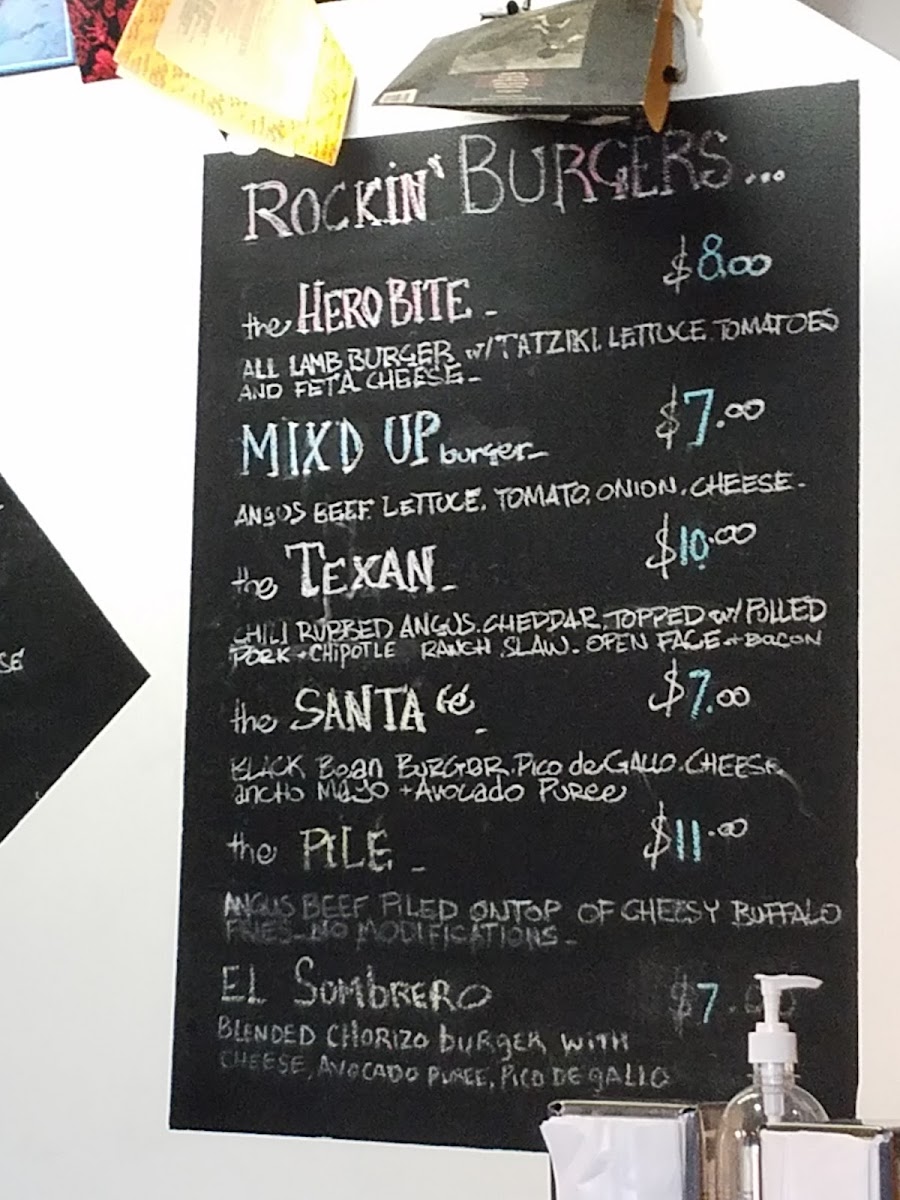 ROCKIN' BURGERS...
the HERO BITE - $8.00
ALL LAMB BURGER w/ TATZIKI. LETTUCE TOMATOES
AND FETA CHEESE -
MIXD UP burger - $7.00
ANGUS BEEF. LETTUCE. TOMATO, ONION. CHEESE -
the TEXAN - $10.00
CHILI RUBBED ANGUS. CHEDDAR. TOPPED w/ PULLED
PORK + CHIPOTLE RANCH SLAW. OPEN FACE + BACON
the SANTA Fé - $7.00
BLACK Bean BURGER. Pico de GALLO. CHEESE,
ancho Mayo + Avocado Puree
the PILE - $11.00
ANGUS BEEF PILED ONTOP OF CHEESY BUFFALO
FRIES - NO MODIFICATIONS -
EL SOMBRERO $7.00
BLENDED CHORIZO BURGER WITH
CHEESE, AVOCADO PUREE, PICO DE GALLO
SE